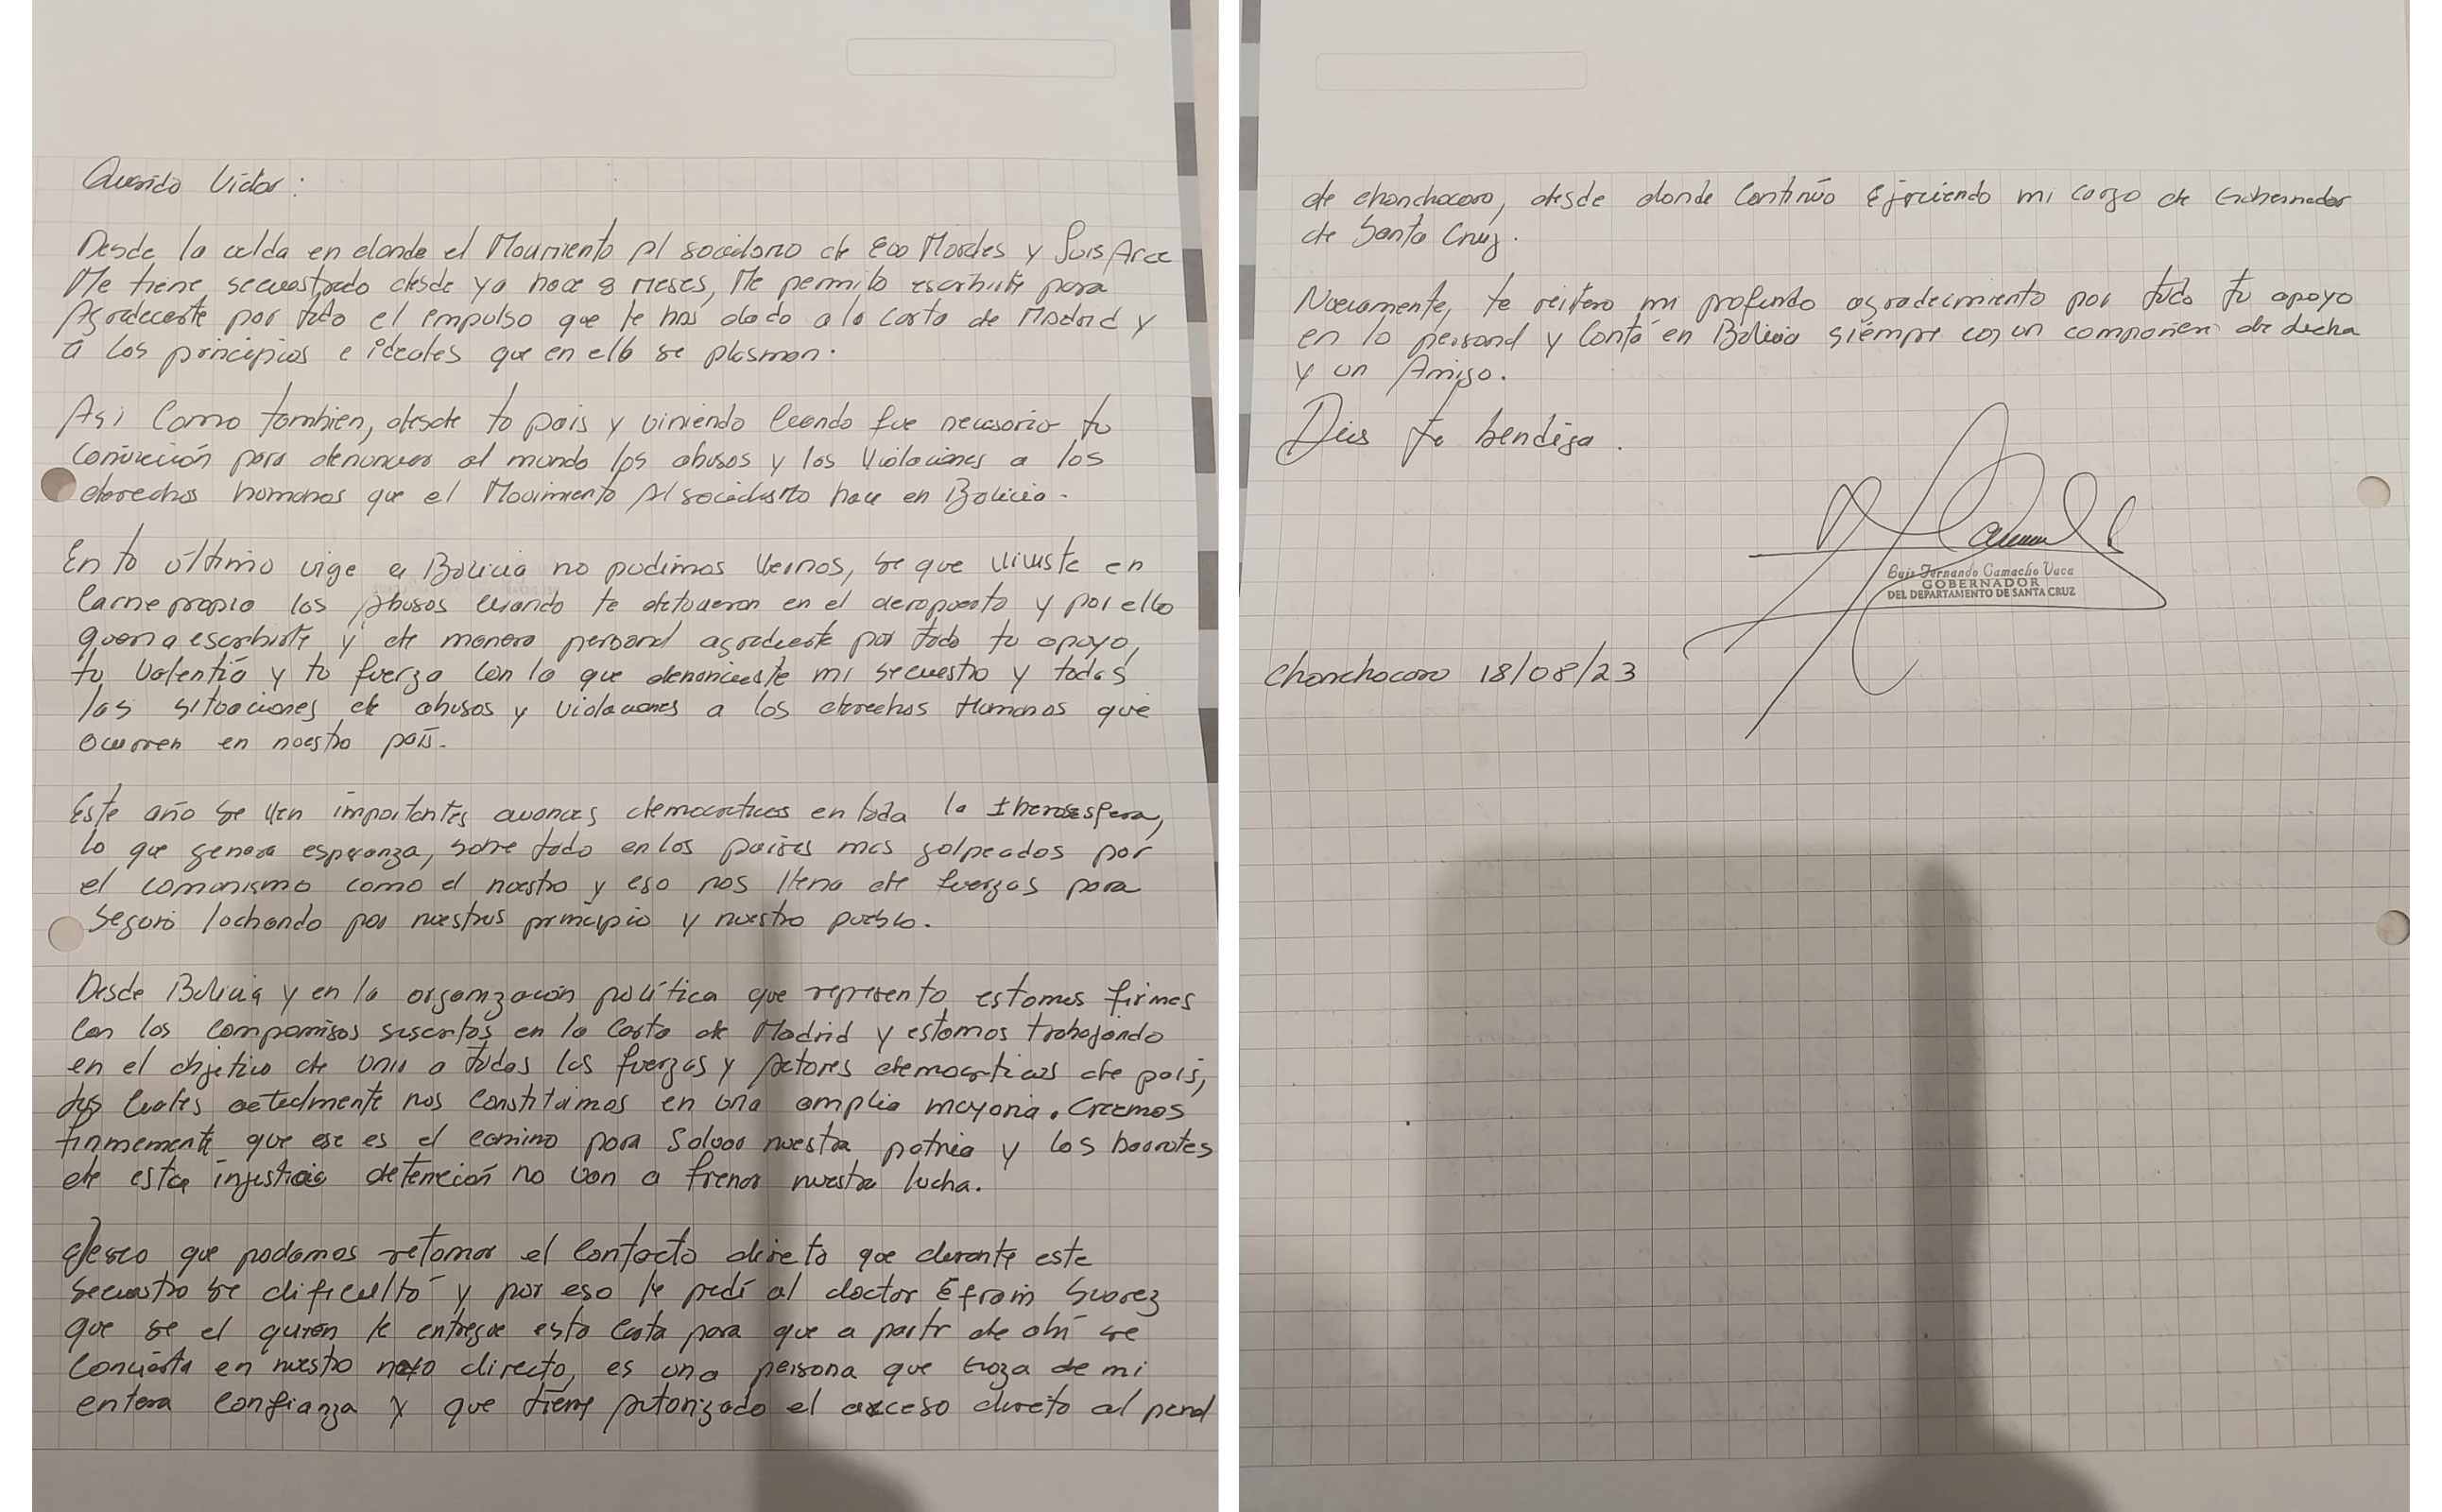 Querido Victor:
Desde la celda en donde el Movimiento Al socialismo de Evo Morales y Luis Arce
Me tiene secuestrado desde ya hace 8 meses, Me permito escribirte para
Agradecerte por todo el impulso que le has dado a la carta de Madrid y
a los principios e ideales que en ella se plasman.
Asi como tambien, desde tu pais y viniendo cuando fue necesario tu
convicción para denunciar al mundo los abusos y las violaciones a los
derechos humanos que el Movimiento Al socialismo hace en Bolivia.
En tu último viaje a Bolivia no pudimos vernos, se que viviste en
carne propia los Abusos cuando te detuvieron en el aeropuerto y por ello
queria escribirte y de manera personal agradecerte por todo tu apoyo,
tu valentía y tu fuerza con la que denunciaste mi secuestro y todas
las situaciones de abusos y violaciones a los derechos Humanos que
ocurren en nuestro país.
Este año se ven importantes avances democraticos en toda la Iberoesfera,
lo que genera esperanza, sobre todo en los paises mas golpeados por
el comunismo como el nuestro y eso nos llena de fuerzas para
seguir luchando por nuestros principio y nuestro pueblo.
Desde Bolivia y en la organización política que represento estamos firmes
con los compromisos suscritos en la Carta de Madrid y estamos trabajando
en el objetivo de unir a todas las fuerzas y Actores democraticos de país,
los cuales actualmente nos constituimos en una amplia mayoria. Creemos
firmemente que ese es el camino para salvar nuestra patria y los barrotes
de esta injusticia detención no van a frenar nuestra lucha.
Deseo que podamos retomar el contacto directo que durante este
secuestro se dificultó y por eso le pedí al doctor Efrain Suarez
que se el quien te entregue esta carta para que a partir de ahí se
convierta en nuestro nexo directo, es una persona que goza de mi
entera confianza y que tiene Autorizado el acceso directo al penal
de chonchocoro, desde donde continúo ejerciendo mi cargo de Gobernador
de Santa Cruz.
Nuevamente, te reitero mi profundo agradecimiento por todo tu apoyo
en lo personal y contá en Bolivia siempre con un compañero de lucha
y un Amigo.
Dios te bendiga.
Luis Fernando Camacho Vaca
GOBERNADOR
DEL DEPARTAMENTO DE SANTA CRUZ
Chonchocoro 18/08/23